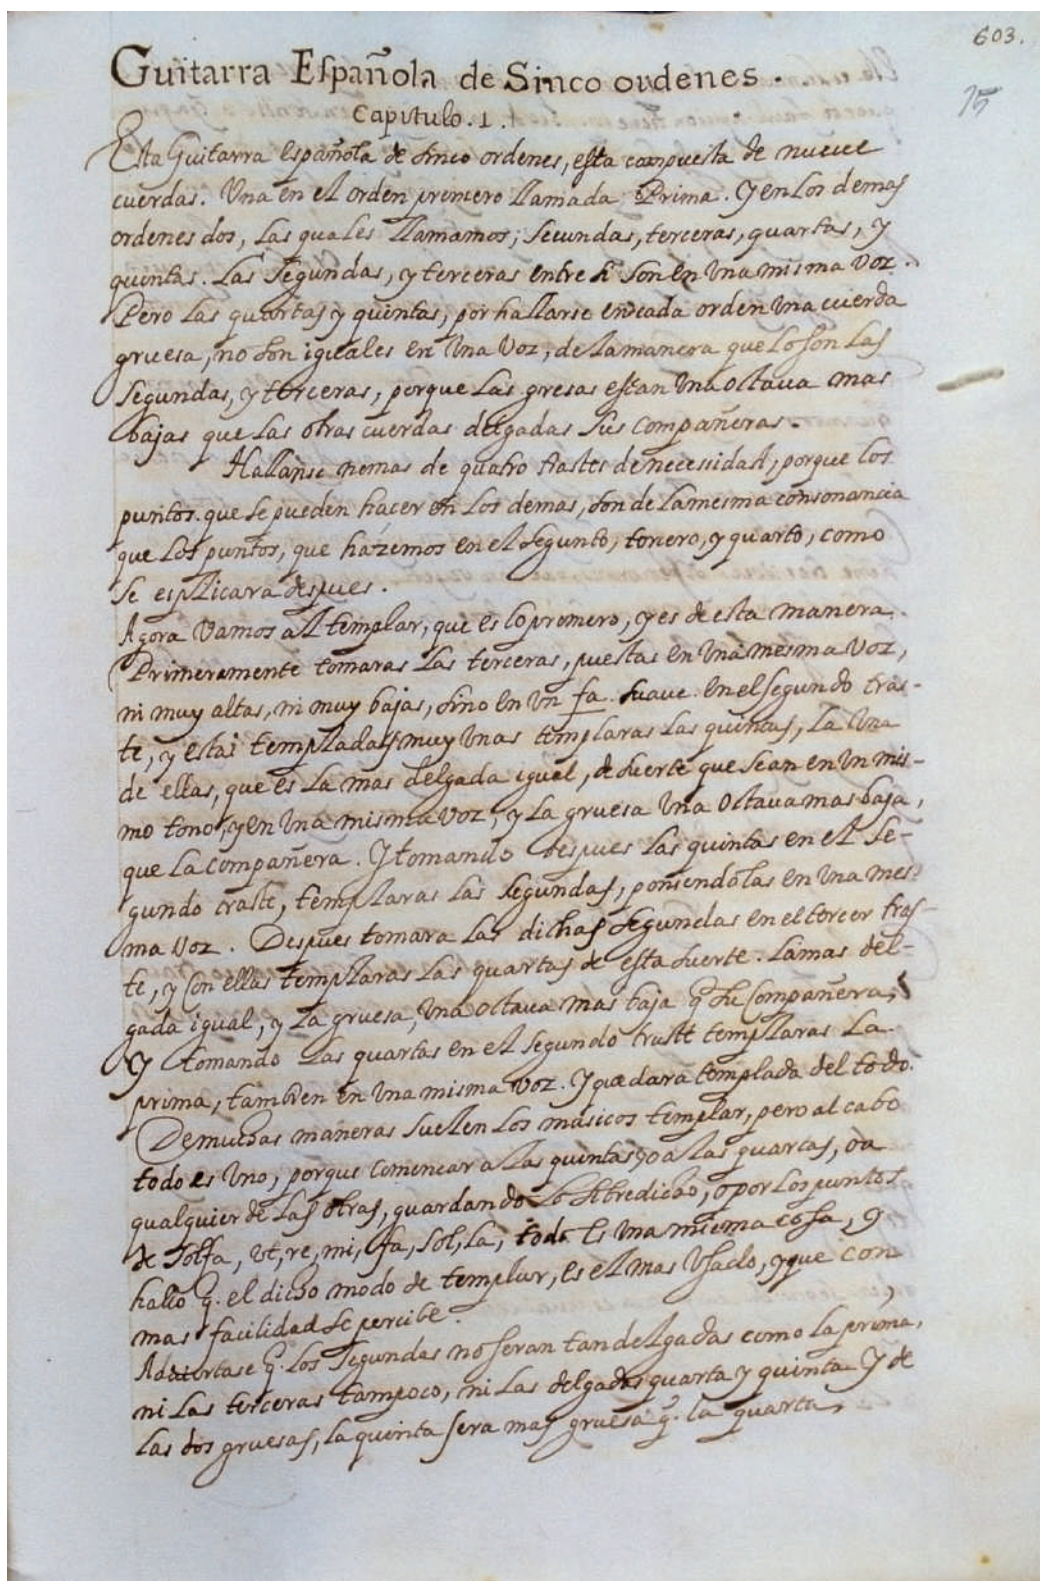 603.
75
Guitarra Española de Sinco ordenes.
Capitulo. 1.
Esta Guitarra española de sinco ordenes, esta compuesta de nueve
cuerdas. Una en el orden primero llamada Prima. Y en los demas
ordenes dos, las quales llamamos; secundas, terceras, quartas, y
quintas. Las segundas, y terceras entre si son en una misma voz.
Pero las quartas y quintas, por hallarse en cada orden una cuerda
gruesa, no son iguales en una voz, de la manera que lo son las
segundas, y terceras, porque las gresas estan una octava mas
bajas que las otras cuerdas delgadas sus compañeras.
Hallanse nomas de quatro trastes de necessidad, porque los
puntos que se pueden hacer en los demas, son de la mesma consonancia
que los puntos, que hazemos en el segunto, tercero, y quarto, como
se esplicara despues.
Agora vamos al templar, que es lo primero, y es de esta manera.
Primeramente tomaras las terceras, puestas en una mesma voz,
ni muy altas, ni muy bajas, sino en un fa suave en el segundo tras-
te, y estas templadas muy unas templaras las quintas, la una
de ellas, que es la mas delgada igual, de suerte que sean en un mis-
mo tono, y en una misma voz, y la gruesa una octava mas baja,
que la compañera. Y tomando despues las quintas en el se-
gundo traste, templaras las segundas, poniendolas en una mes-
ma voz. Despues tomara las dichas segundas en el tercer tras-
te, y con ellas templaras las quartas de esta suerte. La mas del-
gada igual, y la gruesa, una octava mas baja q̃ su compañera,
Y tomando las quartas en el segundo traste templaras la
prima, tambien en una misma voz. Y quedara templada del todo.
De muchas maneras suelen los musicos templar, pero al cabo
todo es uno, porque comencar a las quintas, o a las quartas, o a
qualquier de las otras, guardando lo sobredicho, o por los puntos
de solfa, ut, re, mi, fa, sol, la, todo es una miema cosa, y
hallo q̃. el dicho modo de templar, es el mas usado, y que con
mas facilidad se percibe.
Adviertase q̃. los segundas no seran tan delgadas como la prima,
ni las terceras tampoco, ni las delgadas quarta y quinta. Y de
las dos gruesas, la quinta sera mas gruesa q̃. la quarta,